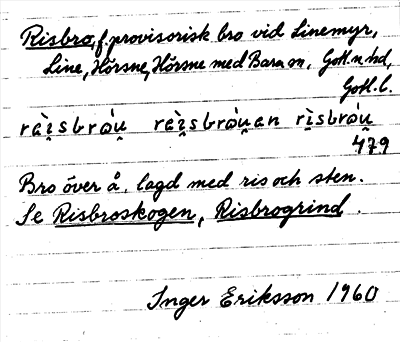 Risbro, f. provisorisk bro vid Linemyr,
Line, Hörsne, Hörsne med Bara sn, Gotl. n. hd,
Gotl. l.
ràı̯sbrǝ̀u̯ ràı̯sbrǝ̀u̯an rı̯sbrǝ́u̯
479
Bro över å, lagd med ris och sten.
Se Risbroskogen, Risbrogrind.
Inger Eriksson 1960